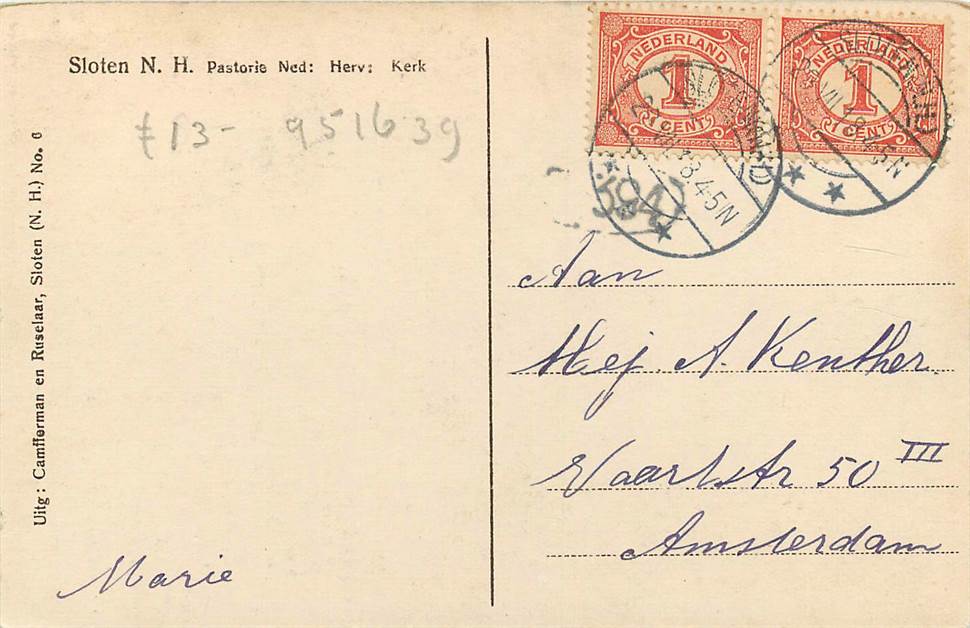 Sloten N. H. Pastorie Ned: Herv: Kerk
f 13- 951639
Uitg: Camfferman en Ruselaar, Sloten (N. H.) No. 6
Marie
NEDERLAND
1
1 CENT
NEDERLAND
1
1 CENT
8.4-5N
Aan
Mej. A. Kenther.
Vaartstr 50 III
Amsterdam